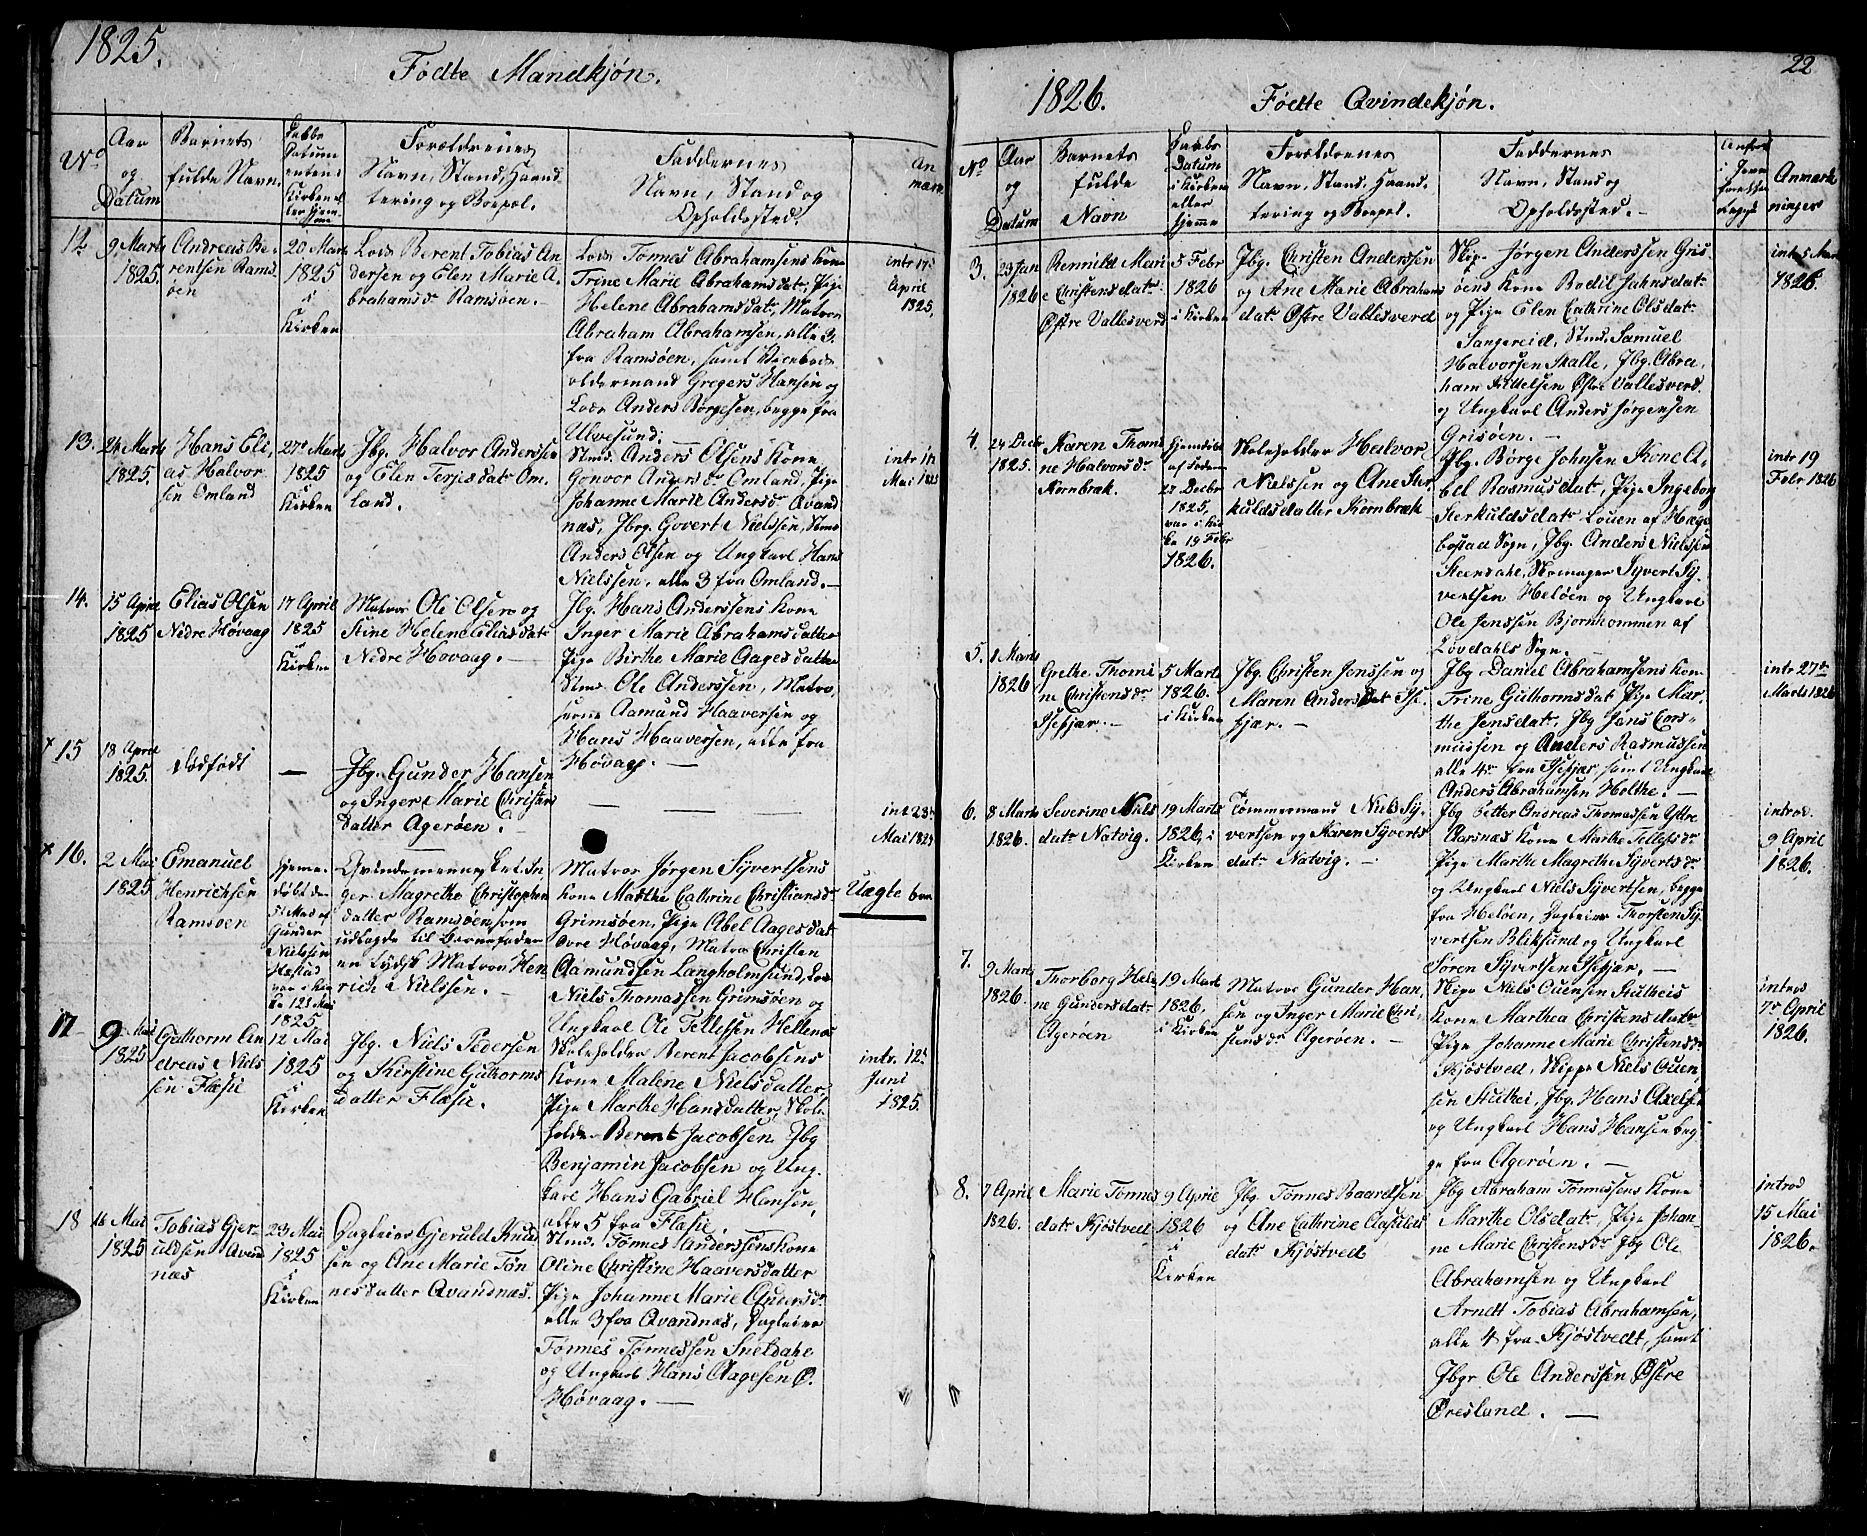 1825.
Fødte Mandkjøn.
No
Aar
og
Datum
Barnets
fulde Navn.
Daabs
Datum
enten i
Kirken el-
ler hjem-
me
Forældrenes
Navn, Stand, Haand-
tering og Boepæl.
Faddernes
Navn, Stand og
Opholdssted.
An
mærk.
12
9 Marts
1825.
Andreas Be-
rentsen Rams-
öen
20 Marts
1825
i
Kirken
Lods Berent Tobias An
dersen og Elen Marie A-
brahamsdr Ramsöen.
Lods Tönnes Abrahamsens Kone
Trine Marie Abrahamsdat, Pige
Helene Abrahamsdat, Matros
Abraham Abrahamsen, alle 3
fra Ramsöen, samt
oldermand Gregers Hansen og
Lods Anders Börgesen, begge fra
Ulvesund.
intr 17
April
1825.
13.
24 Marts
1825.
Hans Eli-
as Halvor
sen Omland
27de Marts
1825
i
Kirken
Jbg. Halvor Anderssen
og Elen Terjesdatr Om-
land.
Stmd. Anders Olsens Kone
Gonvor Andersdr Omland, Pige
Johanne Marie Andersdr Qvand
næs, Jbrg. Govert Nielssen, Stmd
Anders Olsen og Ungkarl Hans
Nielssen, alle 3 fra Omland.
intr
Mai 1825
14.
15 April
1825
Elias Olsen
Nedre Høvaag
17 April
1825
i
Kirken
Matros Ole Olsen og
Stine Helene Eliasdatr
Nedre Hövaag.
Jbg. Hans Anderssens Kone
Inger Marie Abrahamsdatter
Pige Birthe Marie Aagesdatter
Stmd. Ole Anderssen, Matro
serne Aamund Haaversen og
Hans Haaversen, alle fra
Hövaag.
x 15
18 April
1825.
Dödfödt
—
Jbg. Gunder Hansen
og Inger Marie Christens
datter Ageröen.
int 23
Mai 1825
x 16.
2 Mai
1825.
Emanuel
Henrichsen
Ramsöen
hjemme-
döbt den
5 Mai af
Gunder
Nielsen
Hæstad
var i Kir
ke 12 Mai
1825
Qvindemennesket In-
ger Magrethe Christophers
datter Ramsöen, som
udlagde til Barnefader
en tydsk Matros Hen
rich Nielssen.
Matros Jörgen Syvertsens
Kone Marthe Cathrine Christiansdr
Grimsöen, Pige Abel Aagesdat
Hövaag, Matros Christen
Aamundsen Langholmsund, Lods
Niels Thomassen Grimsöen og
Ungkarl Ole Tellefsen Hellenæs
Uægte barn
17
9 Mai
1825
Guthorm An
dreas Niels
sen Flæsie
12 Mai
1825
i
Kirken
Jbg. Niels Pedersen
og Kirstine Guthorms
datter Flæsie.
Skoleholder Berent Jacobsens
Kone Malene Nielsdatter,
Pige Marthe Hansdatter, Skole
holder Berent Jacobsen, Jbg
Benjamin Jacobsen og Ung-
karl Hans Gabriel Hansen,
alle 5 fra Flæsie.
intr. 12
Juni
1825.
18
16 Mai
1825
Tobias Gjer-
uldsen Qvand
næs
23 Mai
1825
i
Kirken
Dagleier Gjeruld Knud
sen og Ane Marie Tön
nesdatter Qvandnæs.
Stmd. Tönnes Anderssens Kone
Oline Christine Haaversdatter
Pige Johanne Marie Andersdr
alle 3 fra Qvandnæs, Dagleier
Tönnes Tönnessen Sneldahl
og Ungkarl Hans Aagesen Ö.
Høvaag.
22
1826.
Fødte Qvindekjön.
No
Aar
og
Datum
Barnets
fulde
Navn
Daabs
Datum
i Kirken
eller
hjemme
Forældrenes
Navn, Stand, Haand-
tering og Boepæl.
Faddernes
Navn, Stand og
Opholdssted.
Anført
i Jevn
Anmærk
ninger
3.
23 Jan
1826
Rennild Mari
e Christensdatr
Østre Vallesverd
5 Febr
1826
i Kirken
Jbg. Christen Anderssen
og Ane Marie Abrahams
datr Østre Vallesverd
Skip. Jørgen Anderssen Gris-
öens Kone Bodil Jahnsdatr
og Pige Elen Cathrine Olsdatr
Sangereid, Stmd. Samuel
Halvorsen Skalle, Jbg. Abra-
ham Kittelsen Østre Vallesverd
og Ungkarl Anders Jørgensen
Grisöen.
intr 5 Mart
1826.
4.
24 Decbr
1825.
Karen Thomi
ne Halvorsdr
Kornbræk.
hjemdöbt
af Faderen
27 Decbr
1825,
var i Kir
ke 19 Febr
1826.
Skoleholder Halvor
Nielssen og Ane Ster-
kuldsdatter Kornbræk
Jbg. Börge Johnsen Kone A-
bel Rasmusdatr, Pige Ingeborg
Sterkuldsdatr Louen af Hæge-
bostad Sogn, Jbg. Anders Nielssen
Steendahl, Skomager Syvert Sy-
vertsen Helöen og Ungkarl
Ole Jenssen Bjornkommen af
Lövdahls Sogn.
intr 19
Febr 1826
5.
1 Marts
1826
Grethe Thomi
ne Christensdr
Isefjær.
5 Marts
1826.
i Kirken
Jbg. Christen Jenssen og
Maren Andersdat Ise-
fjær.
Jbg Daniel Abrahamsens Kone
Trine Guthormsdat, Pige Mar-
the Jensdat, Jbg Jens Cors-
mussen og Anders Rasmussen
alle 4r fra Isefjær, samt Ungkarl
Anders Abrahamsen Holthe.
intr 27de
Marts 1826
6.
8 Marts
1826.
Severine Niels
datr Natvig.
19 Marts
1826, i
Kirken
Tømmermand Niels Sy-
vertsen og Karen Syverts
datr Natvig.
Jbg Andreas Thomassen Ydre
Aarsnæs Kone Marthe Tellefsdr
Pige Marthe Magrethe Syvertsdr
og Ungkarl Niels Syvertsen, begge
fra Helöen, Dagleier Thorsten Sy-
vertsen Bliksund og Ungkarl
Sören Syvertsen Isefjær.
introd.
9 April
1826.
7.
9 Marts
1826.
Thorborg Hele
ne Gundersdatr
Ageröen
19 Mart
1826,
i Kirken
Matros Gunder Han-
sen og Inger Marie Chri-
stensdr Ageröen.
Skipr Niels Ouensen Stutheis
Kone Marthea Christensdatr
Pige Johanne Marie Christensdr
Kjöstved, Skipp Niels Ouen-
sen Stuthei, Jbg. Hans Axelsen
og Ungkarl Hans Hansen beg-
ge fra Ageröen.
introd
7de April
1826.
8.
7 April
1826.
Marie Tönnes
datr Kjöstved
9 April
1826
i
Kirken
Jbg. Tönnes Baardsen
og Ane Cathrine Aasulds
datr Kjöstved
Jbg Abraham Tönnessens Kone
Marthe Olsdatr, Pige Johan-
ne Marie Christensdr Jbg Ole
Abrahamsen og Ungkarl
Arndt Tobias Abrahamsen,
alle 4 fra Kjöstvedt, samt
Jbgr Ole Anderssen Østre
Øresland.
introd
15 Mai
1826.